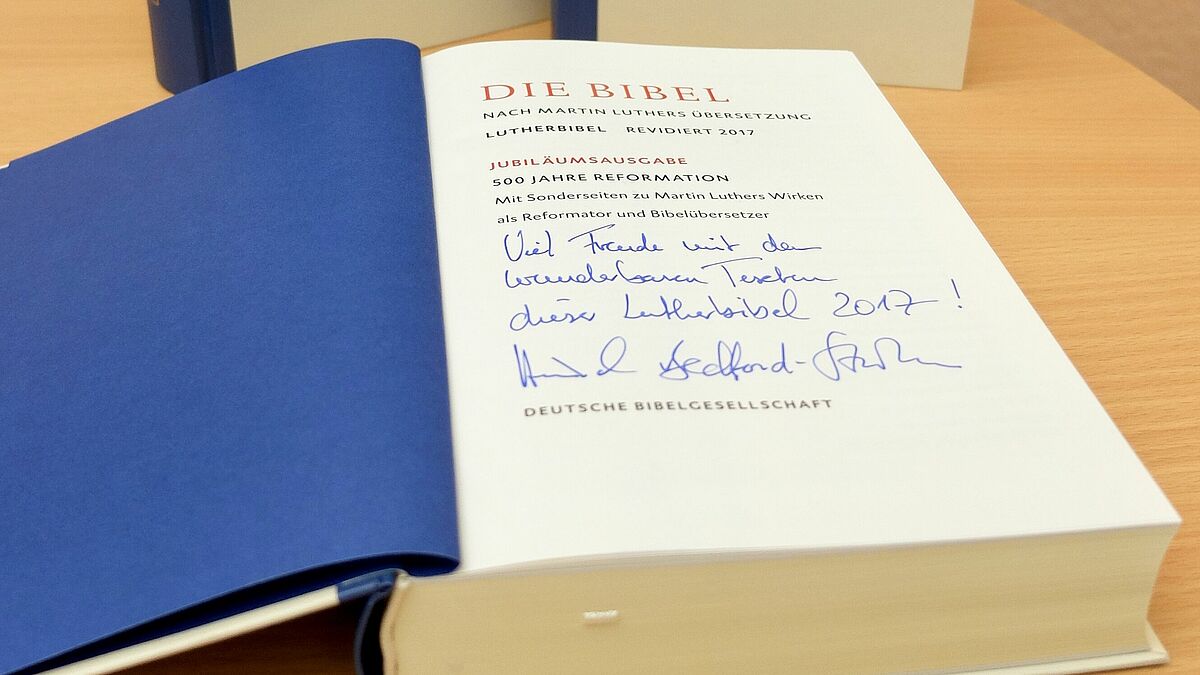 DIE BIBEL
NACH MARTIN LUTHERS ÜBERSETZUNG
LUTHERBIBEL REVIDIERT 2017
JUBILÄUMSAUSGABE
500 JAHRE REFORMATION
Mit Sonderseiten zu Martin Luthers Wirken
als Reformator und Bibelübersetzer
Viel Freude mit den
wunderbaren Texten
dieser Lutherbibel 2017!
Heinrich Bedford-Strohm
DEUTSCHE BIBELGESELLSCHAFT